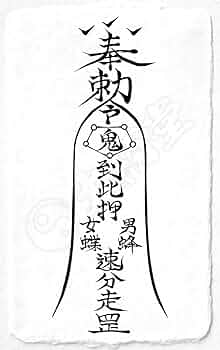 奉
勅
令
鬼
到此押
女蝶 男蜂
速分走罡